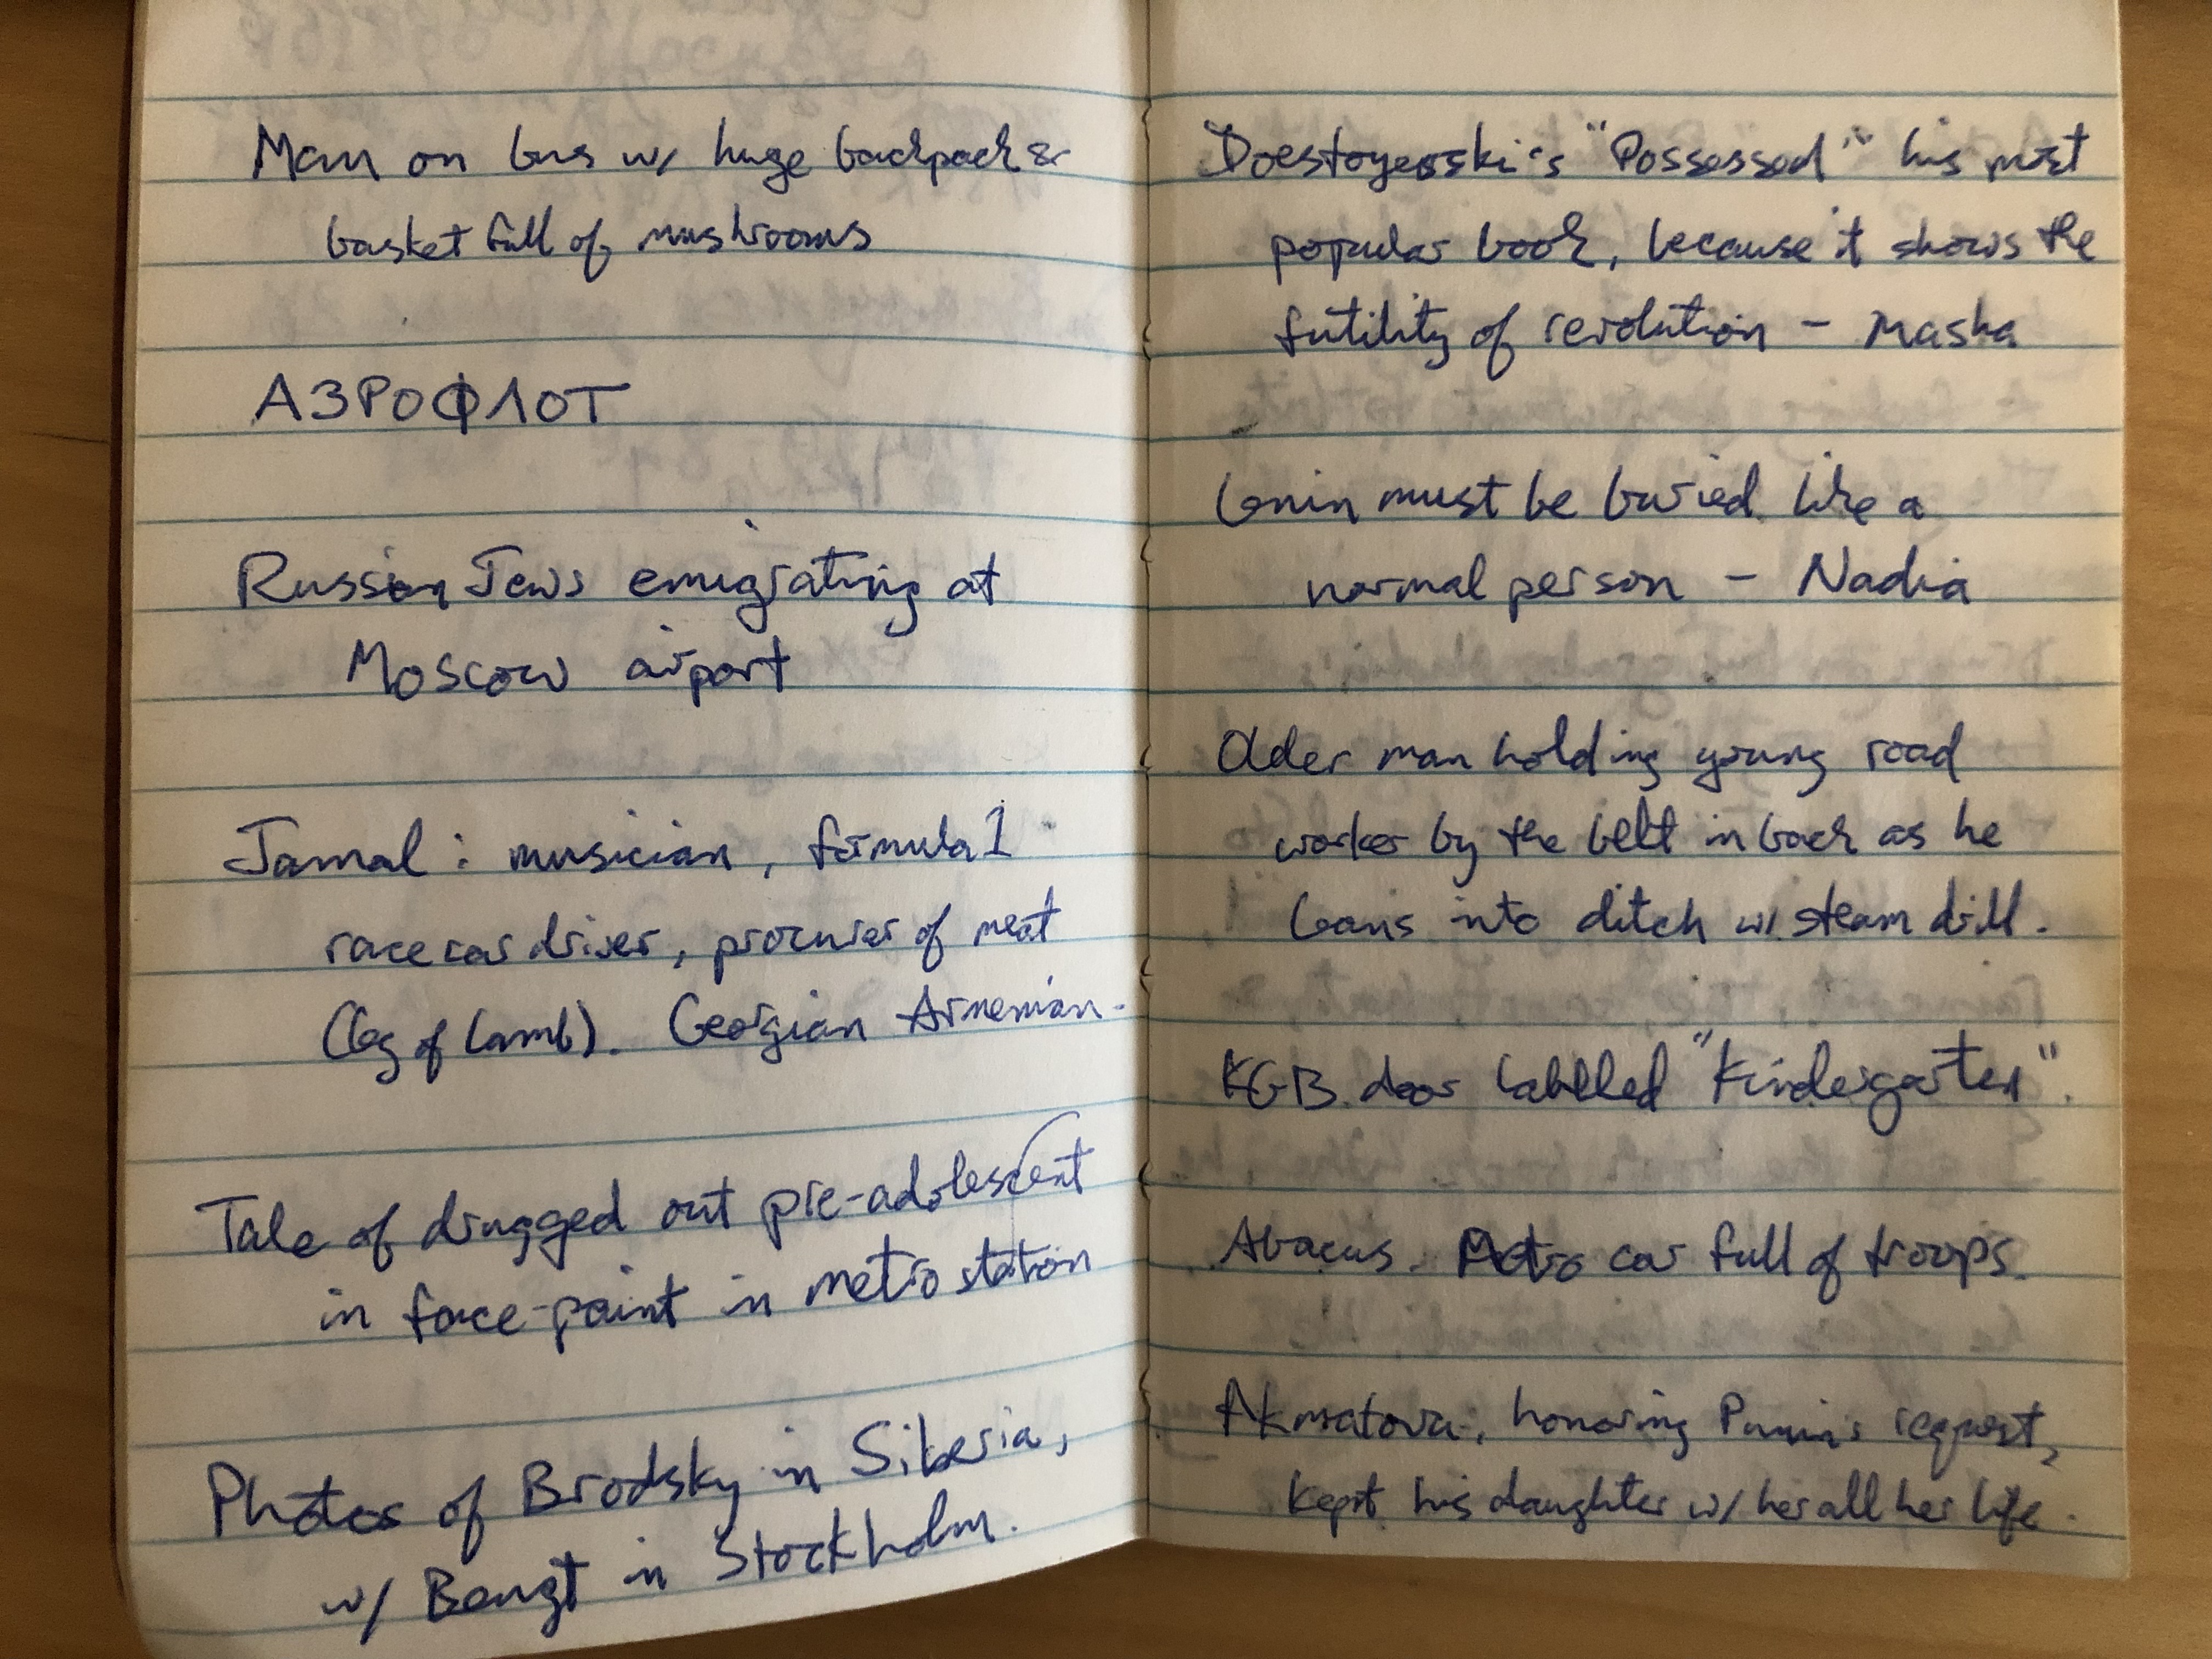 Man on bus w/ huge backpack &
basket full of mushrooms
АЗРОФЛОТ
Russian Jews emigrating at
Moscow airport
Jamal : musician, formula 1
race car driver, procurer of meat
(leg of lamb). Georgian Armenian.
Tale of drugged out pre-adolescent
in face-paint in metro station
Photos of Brodsky in Siberia,
w/ Bengt in Stockholm.
Doestoyevski's "Possessed" his most
popular book, because it shows the
futility of revolution - Masha
Lenin must be buried like a
normal person - Nadia
Older man holding young road
worker by the belt in back as he
leans into ditch w/ steam drill.
KGB door labelled "Kindergarten".
Abacus. Metro car full of troops.
Akmatova, honoring Punin's request,
kept his daughter w/ her all her life.